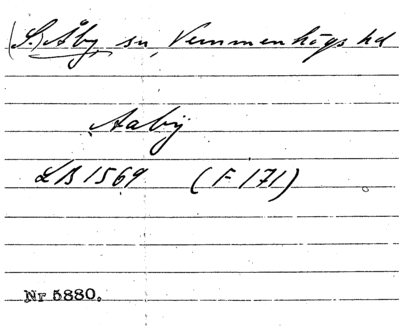 (S.) Åby, sn, Vemmenhögs hd
Aaby
LB 1569 (F 171)
Nr 5880.